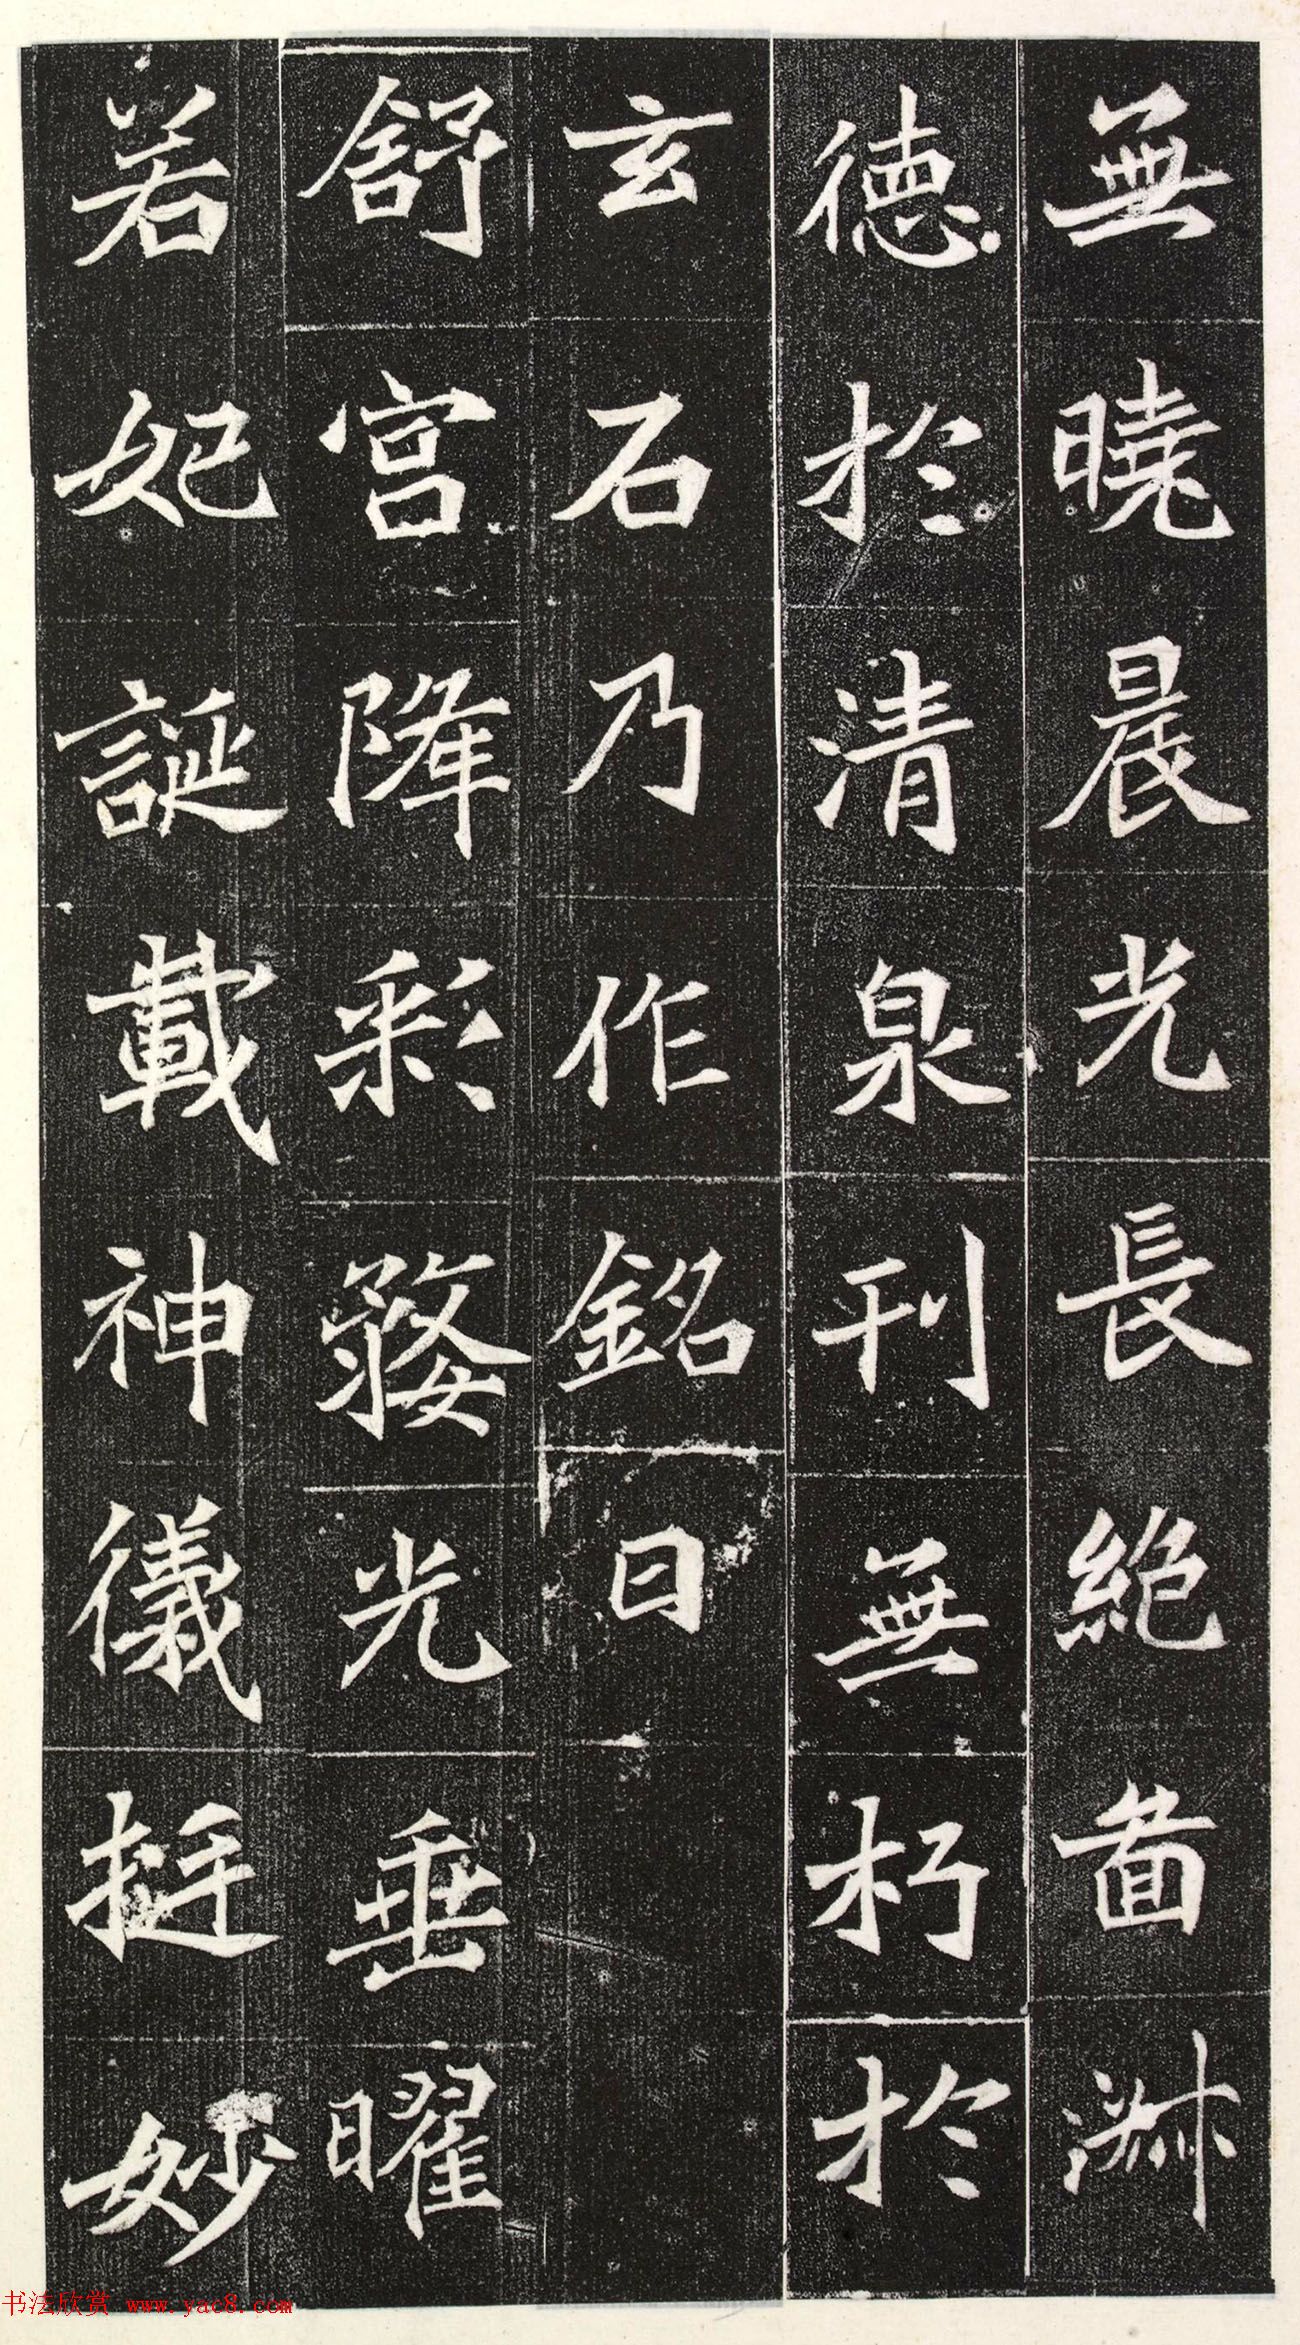 無曉晨光長絕啚淋
德於清泉刊無朽於
玄石乃作銘曰
舒宮降彩婺光垂曜
若妃誕載神儀挺妙
书法欣赏 www.yac8.com